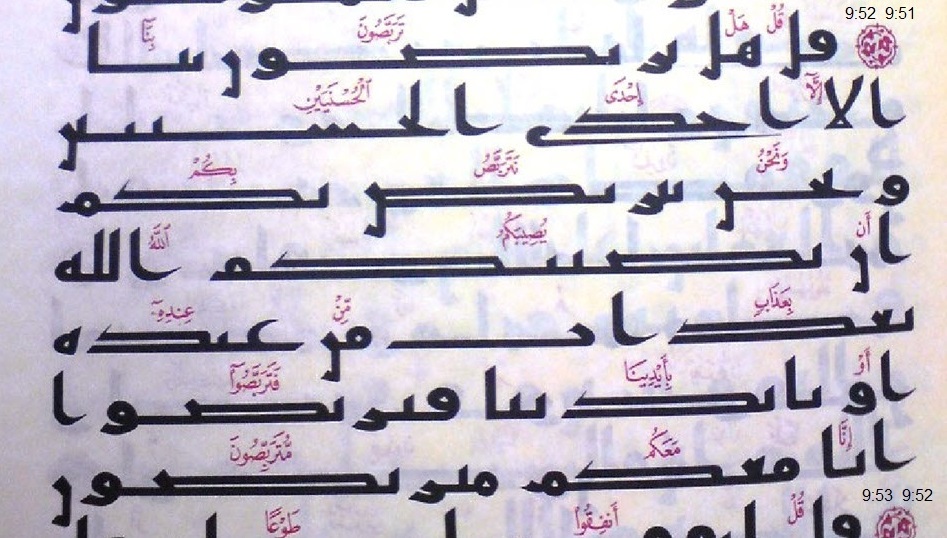 9:52 9:51
قُلْ هَلْ تَرَبَّصُونَ بِنَآ
قل هل تربصون بنا
إِلَّآ إِحْدَى ٱلْحُسْنَيَيْنِ
الا احدى الحسنيين
وَنَحْنُ نَتَرَبَّصُ بِكُمْ
ونحن نتربص بكم
أَن يُصِيبَكُمُ ٱللَّهُ
ان يصيبكم الله
بِعَذَابٍ مِّنْ عِندِهِۦٓ
بعذاب من عنده
أَوْ بِأَيْدِينَا فَتَرَبَّصُوٓا۟
او بايدينا فتربصوا
إِنَّا مَعَكُم مُّتَرَبِّصُونَ
انا معكم متربصون
9:53 9:52
قُلْ أَنفِقُوا۟ طَوْعًا